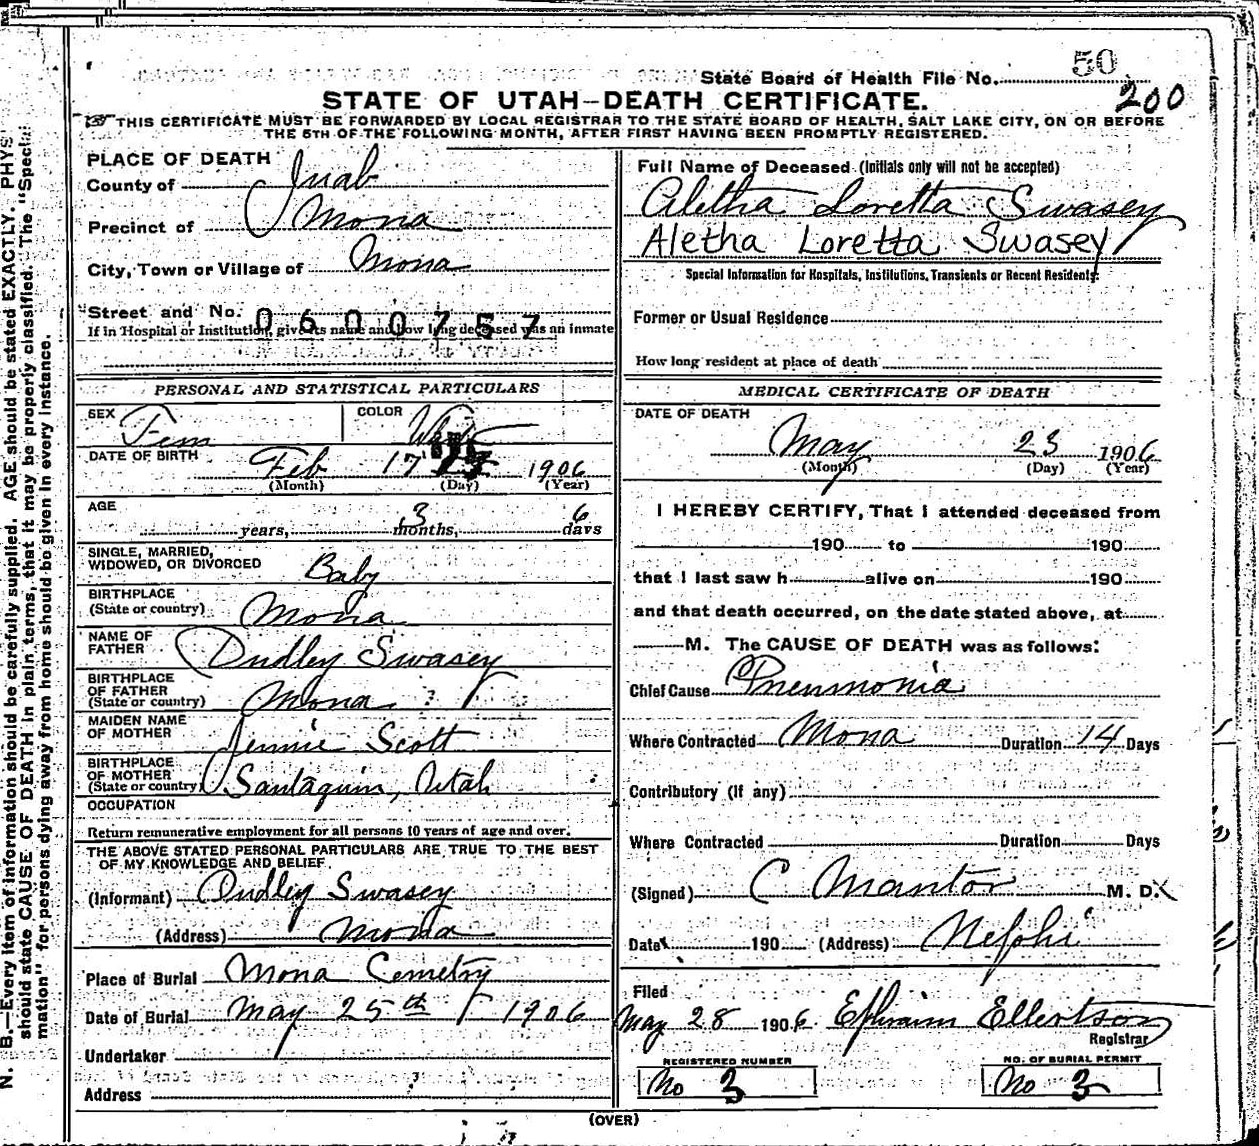 50
State Board of Health File No.
200
STATE OF UTAH—DEATH CERTIFICATE.
THIS CERTIFICATE MUST BE FORWARDED BY LOCAL REGISTRAR TO THE STATE BOARD OF HEALTH, SALT LAKE CITY, ON OR BEFORE
THE 5TH OF THE FOLLOWING MONTH, AFTER FIRST HAVING BEEN PROMPTLY REGISTERED.
PLACE OF DEATH
County of Juab
Precinct of Mona
City, Town or Village of Mona
Street and No. 0600757
If in Hospital or Institution, give its name and how long deceased was an inmate
PERSONAL AND STATISTICAL PARTICULARS
SEX Fem COLOR White
DATE OF BIRTH Feb 17 1906
(Month) (Day) (Year)
AGE
years, 3 months, 6 days
SINGLE, MARRIED,
WIDOWED, OR DIVORCED Baby
BIRTHPLACE
(State or country) Mona
NAME OF
FATHER Dudley Swasey
BIRTHPLACE
OF FATHER
(State or country) Mona
MAIDEN NAME
OF MOTHER Jennie Scott
BIRTHPLACE
OF MOTHER
(State or country) Santaquin, Utah
OCCUPATION
Return remunerative employment for all persons 10 years of age and over.
THE ABOVE STATED PERSONAL PARTICULARS ARE TRUE TO THE BEST
OF MY KNOWLEDGE AND BELIEF
(Informant) Dudley Swasey
(Address) Mona
Place of Burial Mona Cemetry
Date of Burial May 25th 1906
Undertaker
Address
Full Name of Deceased (Initials only will not be accepted)
Aletha Loretta Swasey
Aletha Loretta Swasey
Special Information for Hospitals, Institutions, Transients or Recent Residents:
Former or Usual Residence
How long resident at place of death
MEDICAL CERTIFICATE OF DEATH
DATE OF DEATH
May 23 1906
(Month) (Day) (Year)
I HEREBY CERTIFY, That I attended deceased from
190 to 190
that I last saw h alive on 190
and that death occurred, on the date stated above, at
M. The CAUSE OF DEATH was as follows:
Chief Cause Pneumonia
Where Contracted Mona Duration 14 Days
Contributory (if any)
Where Contracted Duration Days
(Signed) C Mantor M. D.
Date 190 (Address) Nephi
Filed
May 28 1906 Ephraim Ellertson
Registrar
REGISTERED NUMBER
No 3
NO. OF BURIAL PERMIT
No 3
(OVER)
N. B.—Every item of information should be carefully supplied. AGE should be stated EXACTLY. PHYS
should state CAUSE OF DEATH in plain terms, that it may be properly classified. The "Special
mation" for persons dying away from home should be given in every instance.